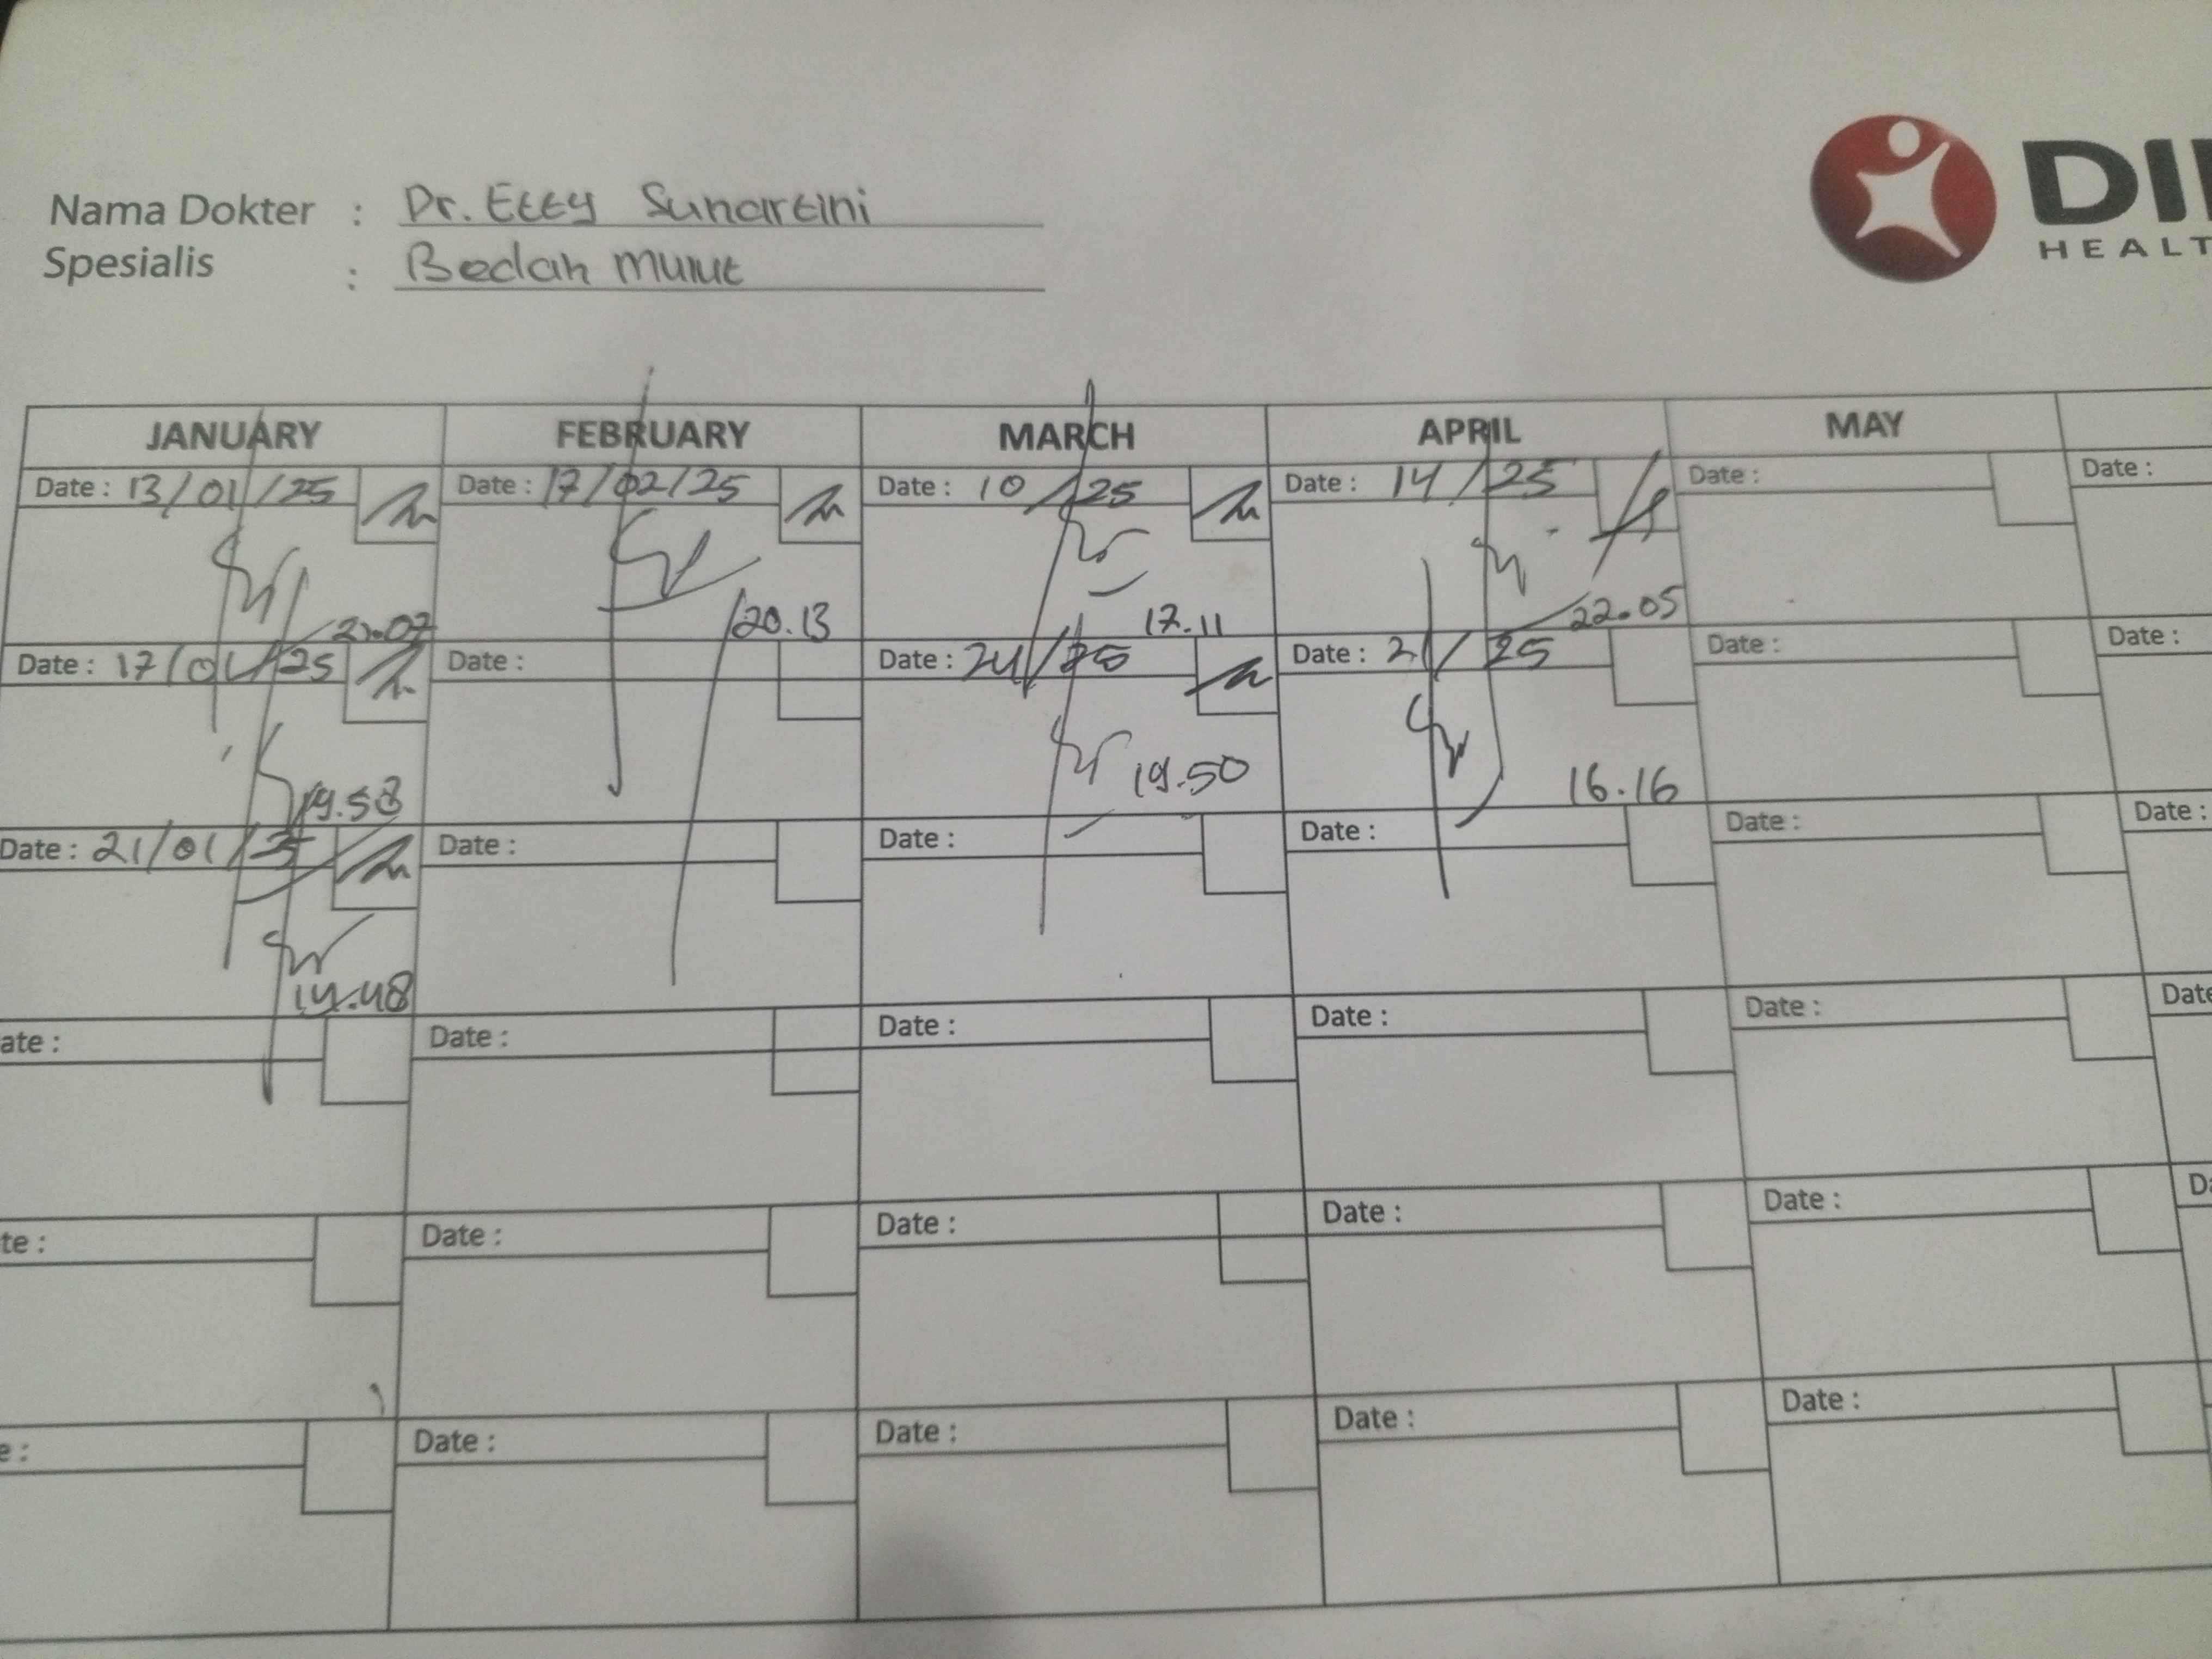 Nama Dokter : Dr. Etty Sunartini
Spesialis : Bedah Mulut
DI
HEALT
JANUARY FEBRUARY MARCH APRIL MAY
Date : 13/01/25 Date : 17/02/25 Date : 10/25 Date : 14/25 Date : Date :
21.07 20.13 17.11 22.05
Date : 17/01/25 Date : Date : 24/25 Date : 21/25 Date : Date :
19.58 19.50 16.16
Date : 21/01/25 Date : Date : Date : Date : Date :
14.48
ate : Date : Date : Date : Date : Date
te : Date : Date : Date : Date : Da
e : Date : Date : Date : Date :